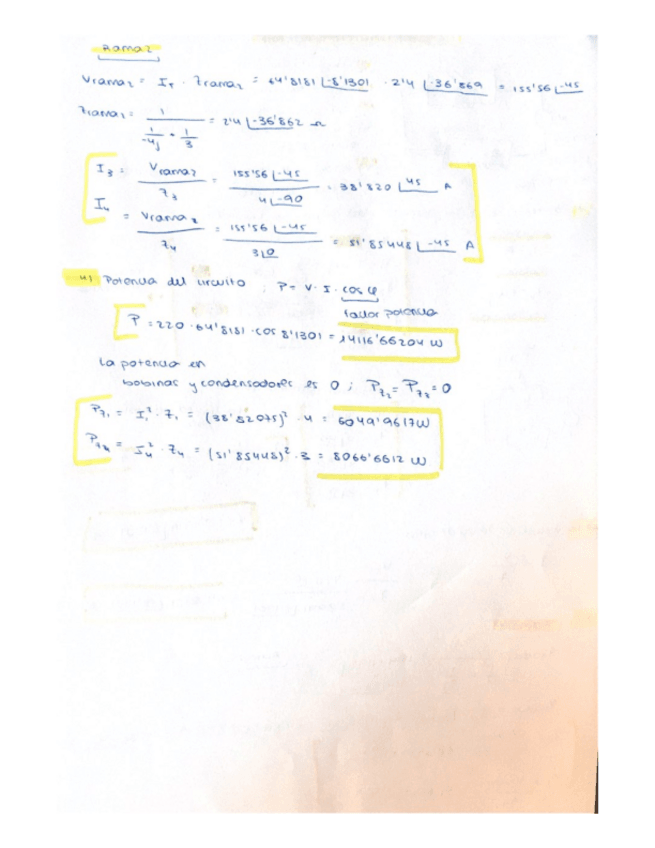 Rama 2
Vrama₂ = I_T · Zrama₂ = 64'8181 ∟-8'1301 · 2'4 ∟-36'869 = 155'56 ∟-45
Zrama₂ = 1 / (1/-4j + 1/3) = 2'4 ∟-36'862 Ω
I₃ = Vrama₂ / Z₃ = 155'56 ∟-45 / 4 ∟-90 = 38'820 ∟45 A
I₄ = Vrama₂ / Z₄ = 155'56 ∟-45 / 3 ∟0 = 51'85448 ∟-45 A
4) Potencia del circuito ; P = V · I · cos φ
factor potencia
P = 220 · 64'8181 · cos 8'1301 = 14116'66204 W
La potencia en
bobinas y condensadores es 0 ; P_Z₂ = P_Z₃ = 0
P_Z₁ = I₁² · Z₁ = (38'82075)² · 4 = 6049'9617 W
P_Z₄ = I₄² · Z₄ = (51'85448)² · 3 = 8066'6612 W